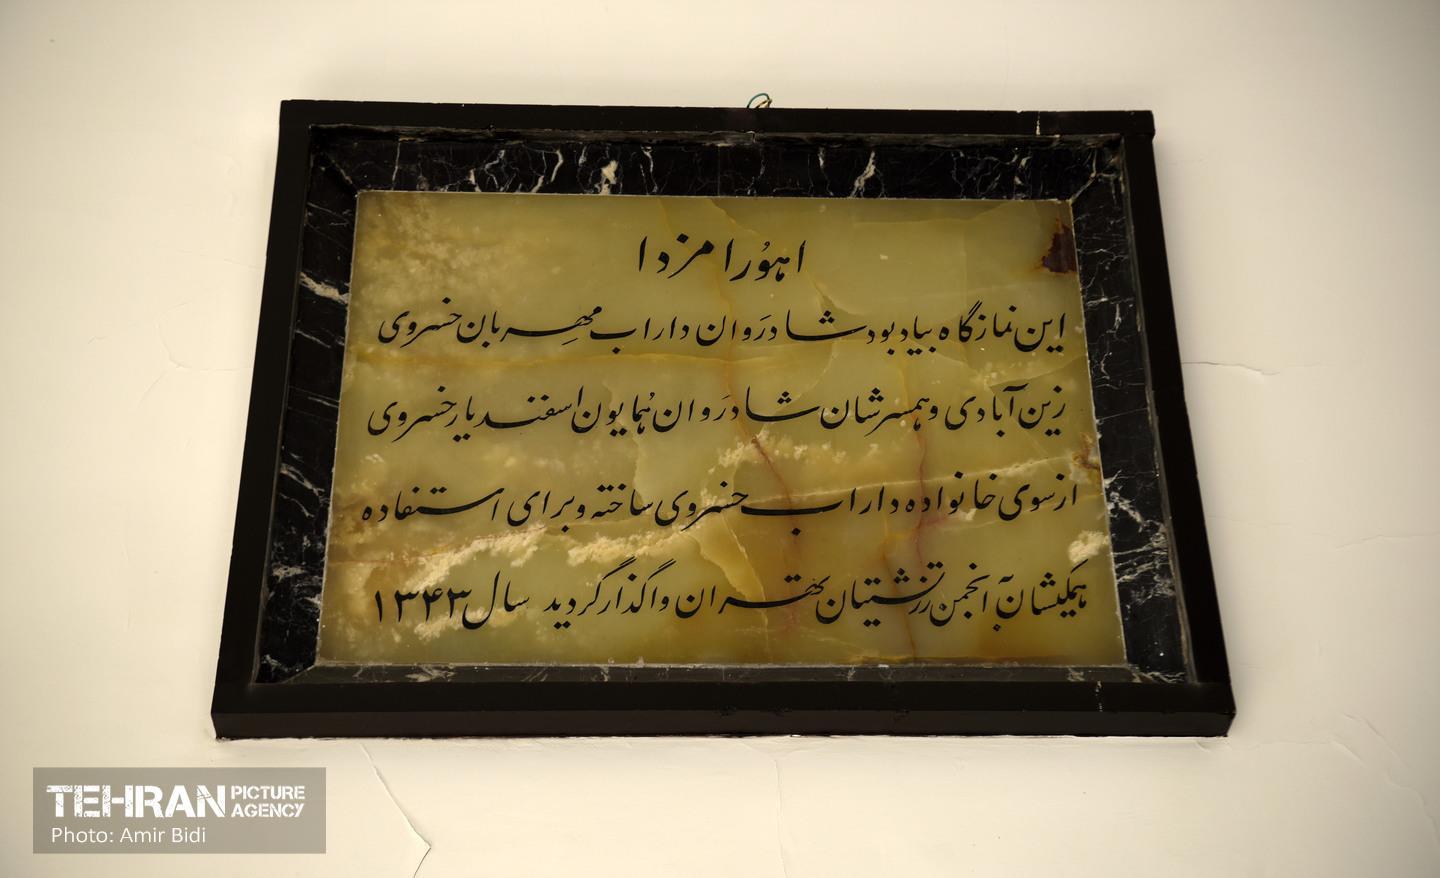 اهورا مزدا
این نمازگاه بیادبود شادروان داراب مهربان خسروی
زین آبادی و همسرشان شادروان همایون اسفندیار خسروی
از سوی خانواده داراب خسروی ساخته و برای استفاده
همکیشان به انجمن زرتشتیان تهران واگذار گردید سال ۱۳۴۳
TEHRAN PICTURE AGENCY
Photo: Amir Bidi